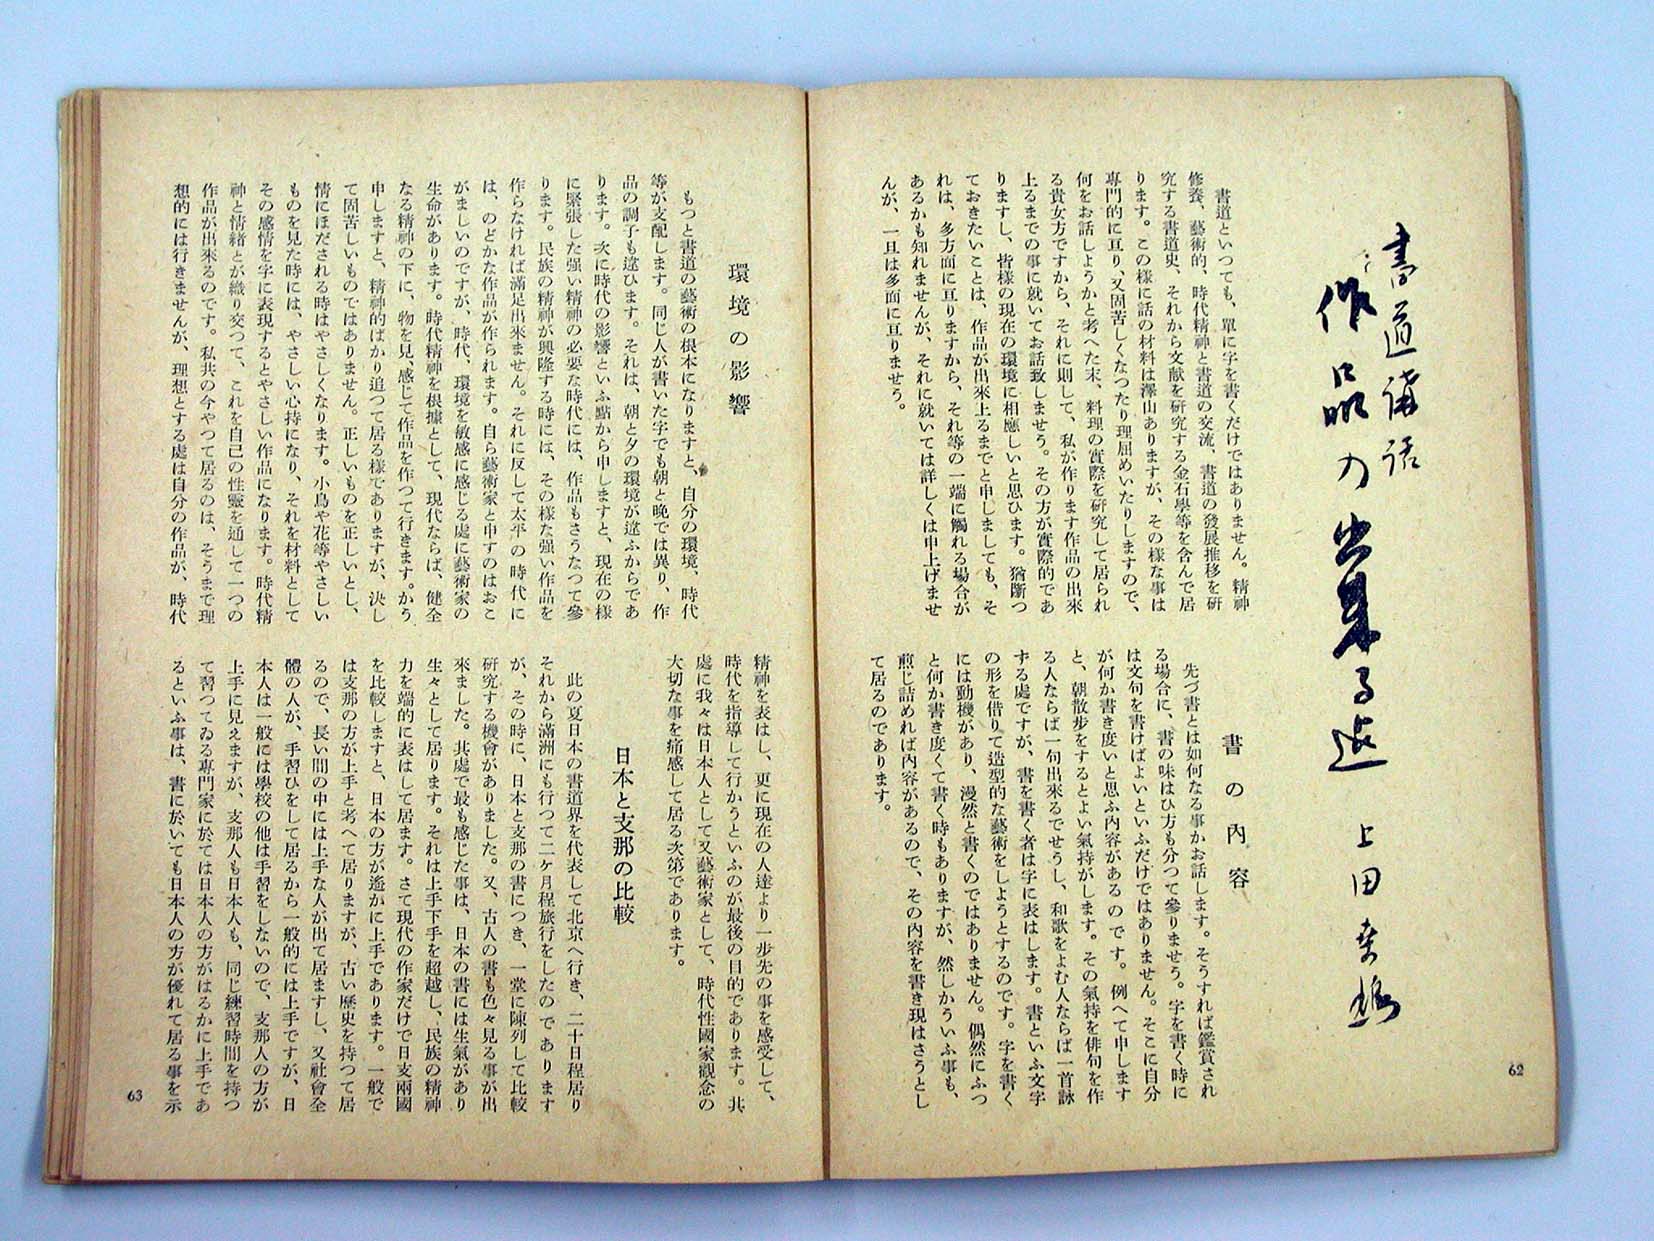 書道講話
作品の出来る迄
上田桑鳩
書道といつても、單に字を書くだけではありません。精神
修養、藝術的、時代精神と書道の交流、書道の發展推移を研
究する書道史、それから文献を研究する金石學等を含んで居
ります。この樣に話の材料は澤山ありますが、その樣な事は
專門的に亘り、又固苦しくなつたり理屈めいたりしますので、
何をお話しようかと考へた末、料理の實際を研究して居られ
る貴女方ですから、それに則して、私が作ります作品の出來
上るまでの事に就いてお話致しませう。その方が實際的であ
りますし、皆樣の現在の環境に相應しいと思ひます。猶斷つ
ておきたいことは、作品が出來上るまでと申しましても、そ
れは、多方面に亘りますから、それ等の一端に觸れる場合が
あるかも知れませんが、それに就いては詳しくは申上げませ
んが、一旦は多面に亘りませう。
書の內容
先づ書とは如何なる事かお話します。そうすれば鑑賞され
る場合に、書の味はひ方も分つて參りませう。字を書く時に
は文句を書けばよいといふだけではありません。そこに自分
が何か書き度いと思ふ內容があるのです。例へて申します
と、朝散步をするとよい氣持がします。その氣持を俳句を作
る人ならば一句出來るでせうし、和歌をよむ人ならば一首詠
する處ですが、書を書く者は字に表はします。書といふ文字
の形を借りて造型的な藝術をしようとするのです。字を書く
には動機があり、漫然と書くのではありません。偶然にふつ
と何か書き度くて書く時もありますが、然しかういふ事も、
煎じ詰めれば內容があるので、その內容を書き現はさうとし
て居るのであります。
62
環境の影響
もつと書道の藝術の根本になりますと、自分の環境、時代
等が支配します。同じ人が書いた字でも朝と晩では異り、作
品の調子も違ひます。それは、朝と夕の環境が違ふからであ
ります。次に時代の影響といふ點から申しますと、現在の樣
に緊張した强い精神の必要な時代には、作品もさうなつて參
ります。民族の精神が興隆する時には、その樣な强い作品を
作らなければ滿足出來ません。それに反して太平の時代に
は、のどかな作品が作られます。自ら藝術家と申すのはおこ
がましいのですが、時代、環境を敏感に感じる處に藝術家の
生命があります。時代精神を根據として、現代ならば、健全
なる精神の下に、物を見、感じて作品を作つて行きます。かう
申しますと、精神的ばかり追つて居る樣でありますが、決し
て固苦しいものではありません。正しいものを正しいとし、
情にほだされる時はやさしくなります。小鳥や花等やさしい
ものを見た時には、やさしい心持になり、それを材料として
その感情を字に表現するとやさしい作品になります。時代精
神と情緒とが織り交つて、これを自己の性靈を通して一つの
作品が出來るのです。私共の今やつて居るのは、そうまで理
想的には行きませんが、理想とする處は自分の作品が、時代
精神を表はし、更に現在の人達より一步先の事を感受して、
時代を指導して行かうといふのが最後の目的であります。共
處に我々は日本人として又藝術家として、時代性國家觀念の
大切な事を痛感して居る次第であります。
日本と支那の比較
此の夏日本の書道界を代表して北京へ行き、二十日程居り
それから滿洲にも行つて二ケ月程旅行をしたのであります
が、その時に、日本と支那の書につき、一堂に陳列して比較
研究する機會がありました。又、古人の書も色々見る事が出
來ました。共處で最も感じた事は、日本の書には生氣があり
生々として居ります。それは上手下手を超越し、民族の精神
力を端的に表はして居ます。さて現代の作家だけで日支兩國
を比較しますと、日本の方が遙かに上手であります。一般で
は支那の方が上手と考へて居りますが、古い歷史を持つて居
るので、長い間の中には上手な人が出て居ますし、又社會全
體の人が、手習ひをして居るから一般的には上手ですが、日
本人は一般には學校の他は手習をしないので、支那人の方が
上手に見えますが、支那人も日本人も、同じ練習時間を持つ
て習つてゐる專門家に於ては日本人の方がはるかに上手であ
るといふ事は、書に於いても日本人の方が優れて居る事を示
63